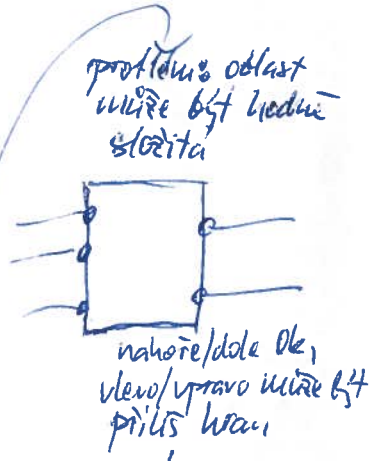 problém: oblast
může být hodně
složitá
nahoře/dole Ok,
vlevo/vpravo může být
příliš hran,